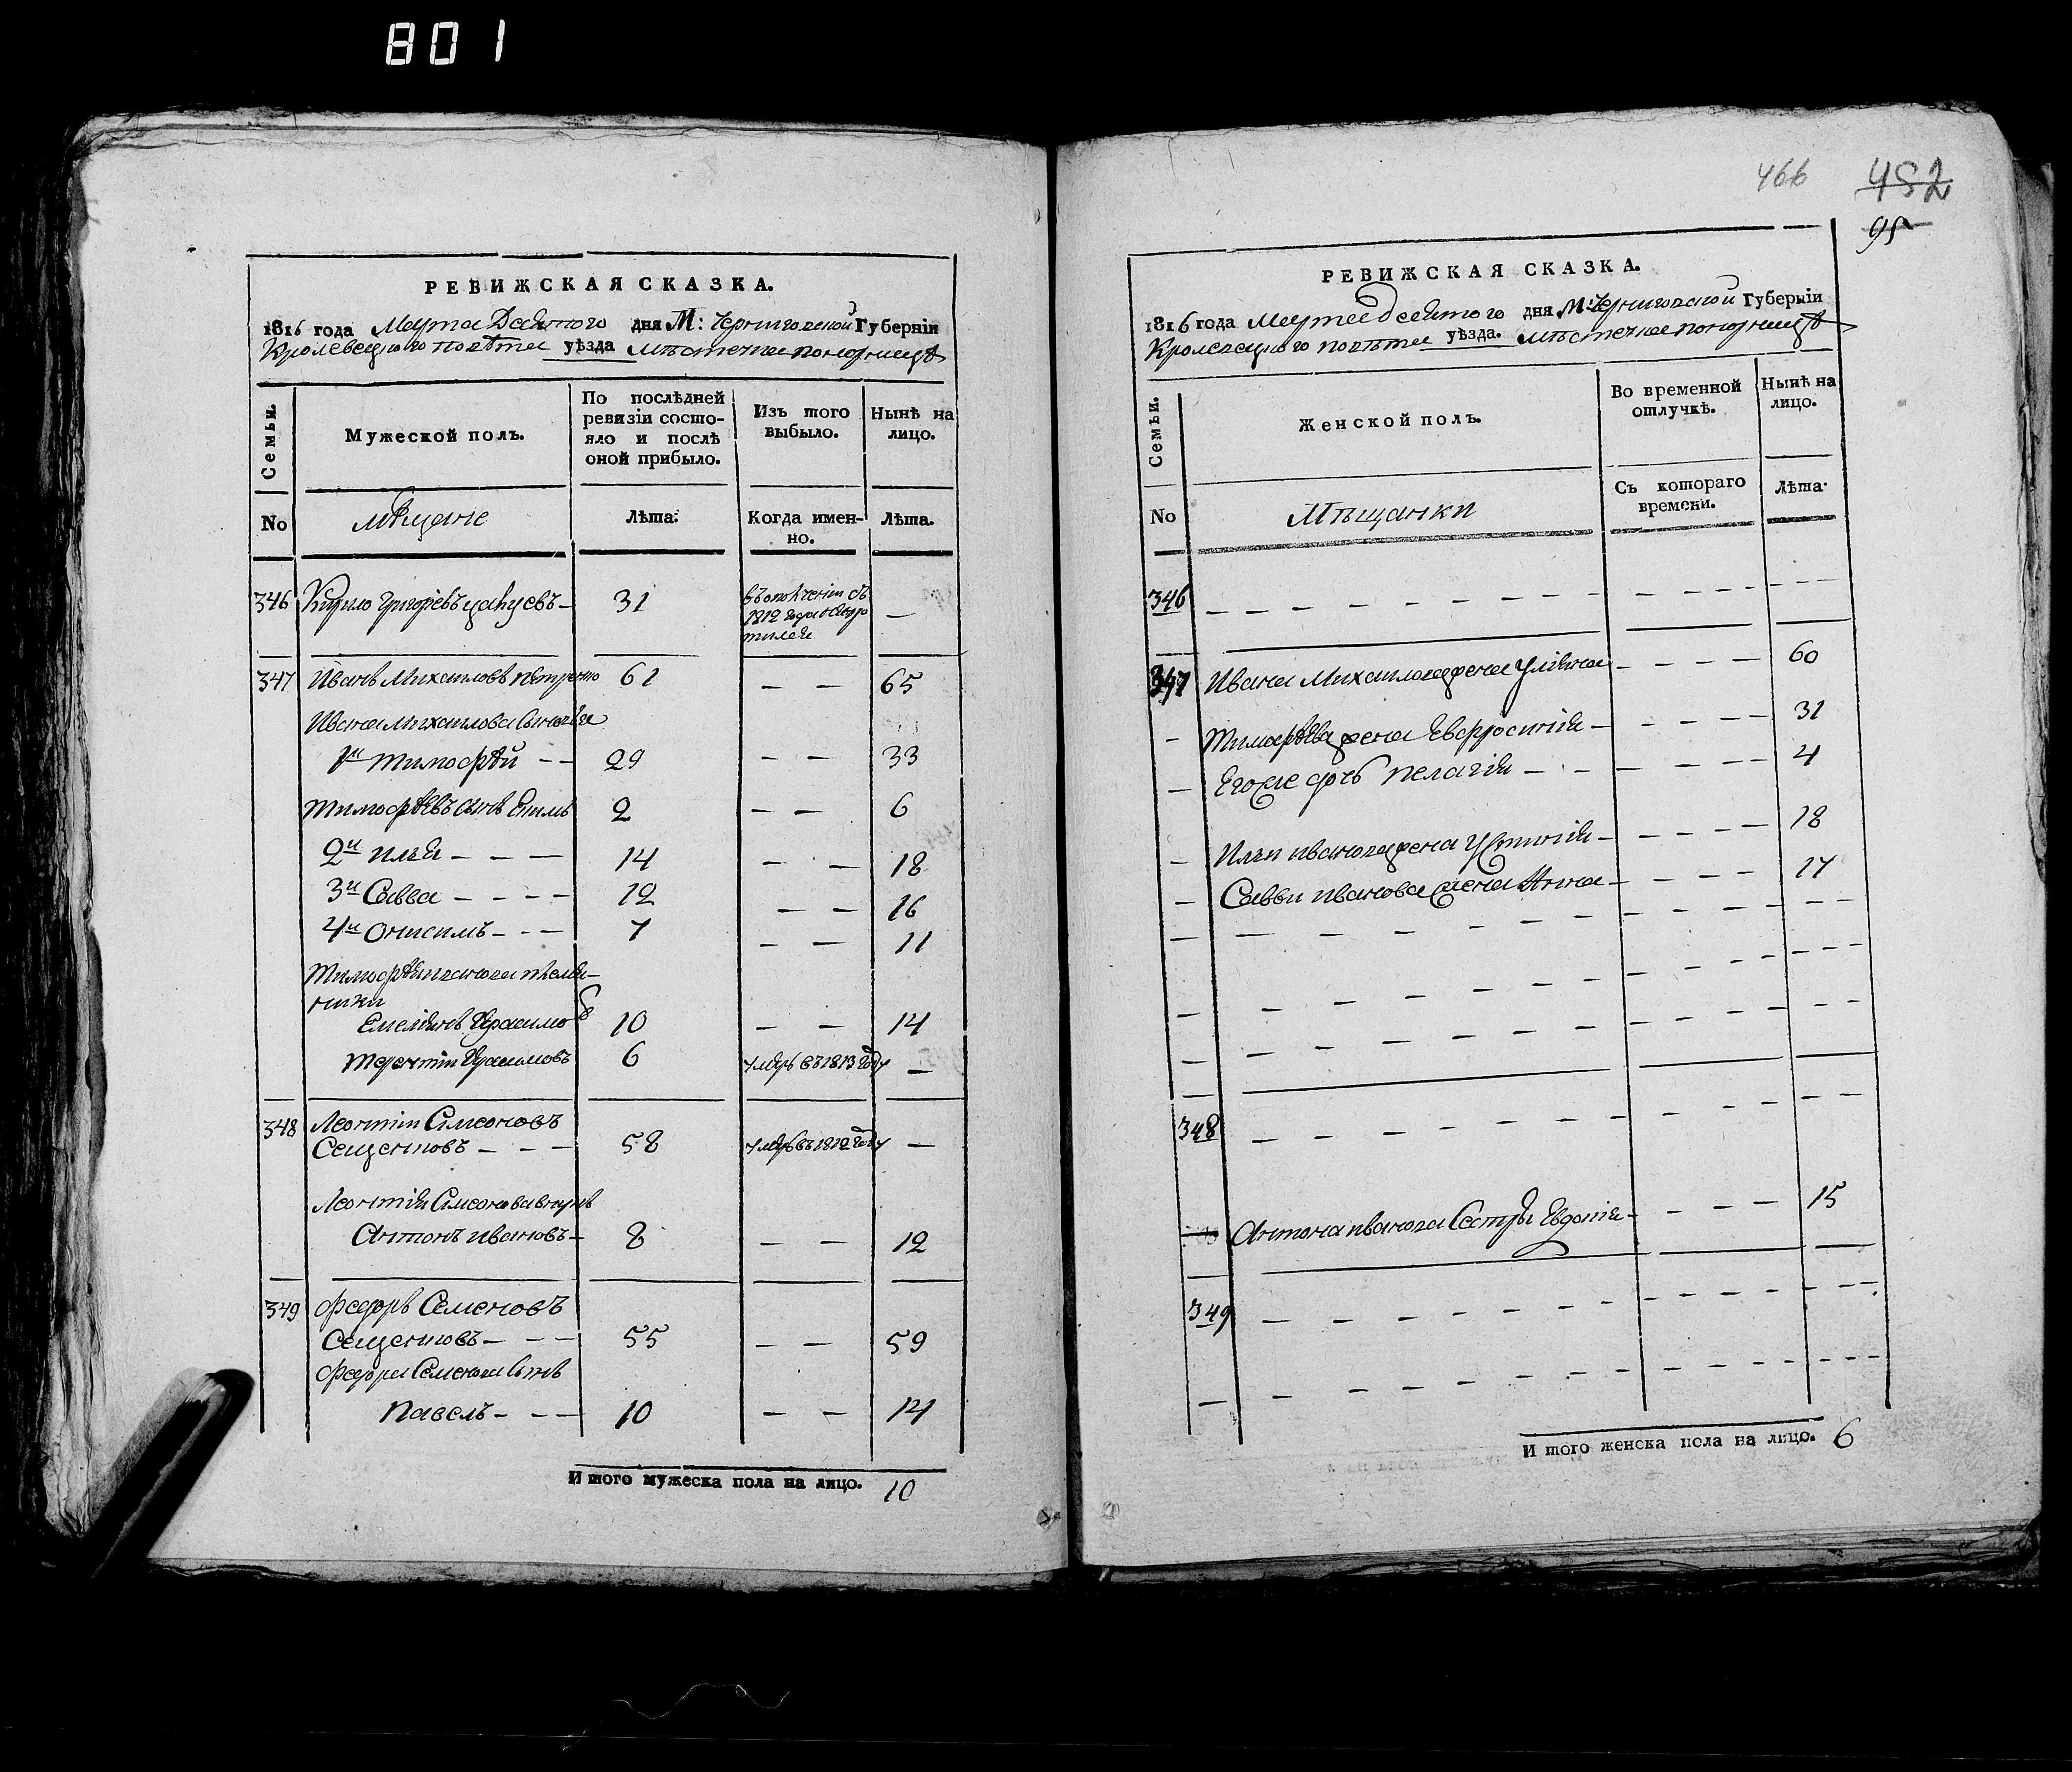 801
РЕВИЖСКАЯ СКАЗКА.
1816 года Марта Десятого дня М: Черниговской Губернiи
Кролевецкого повѣта уѣзда Мѣстечка Понорницѣ
Семьи.
Мужеской полъ.
По послѣдней ревизiи состо-
яло и послѣ оной прибыло.
Изъ того выбыло.
Нынѣ на лицо.
No
мѣщане
Лѣта.
Когда имен-
но.
Лѣта.
346 Кирило Григорiевъ 31 1812 года —
347 Иванъ Михаиловъ Петренко 61 — — 65
Ивана Михаилова сыновья
1й Тимофѣй — — 29 — — 33
Тимофѣевъ сынъ 2 — — 6
2й Илья — — — 14 — — 18
3й Савва — — — — 12 — — 16
4й Онисимъ — — — 7 — — 11
Тимофѣя Иванова племян-
ники
Емелiянъ Герасимовъ 10 — — 14
Терентiй Герасимовъ 6 умеръ въ 1813 году —
348 Леонтiй Симоновъ
— — — 58 умеръ въ 1812 году —
Леонтiя Симонова внукъ
Антонъ Ивановъ — 8 — — 12
349 Федоръ Семеновъ
— — — 55 — — 59
Федора Семенова сынъ
Павелъ — — — 10 — — 14
И того мужеска пола на лицо. 10
466 482
95
РЕВИЖСКАЯ СКАЗКА.
1816 года Марта Десятого дня М: Черниговской Губернiи
Кролевецкого повѣта уѣзда. Мѣстечка Понорницѣ
Семьи.
Женской полъ.
Во временной отлучкѣ.
Нынѣ на лицо.
No
Мѣщанки
Съ котораго времени.
Лѣта.
346
347 Ивана Михаилова жена Улiяна — — — — 60
— Тимофѣева жена Евфросинiя — — — — — 31
— Его же дочь Пелагiя — — — — — — 4
— Ильи Иванова жена Устинiя — — — — — 18
— Саввы Иванова жена Анна — — — — 17
348
Антона Иванова сестра Евдокiя — — — — 15
349
И того женска пола на лицо. 6